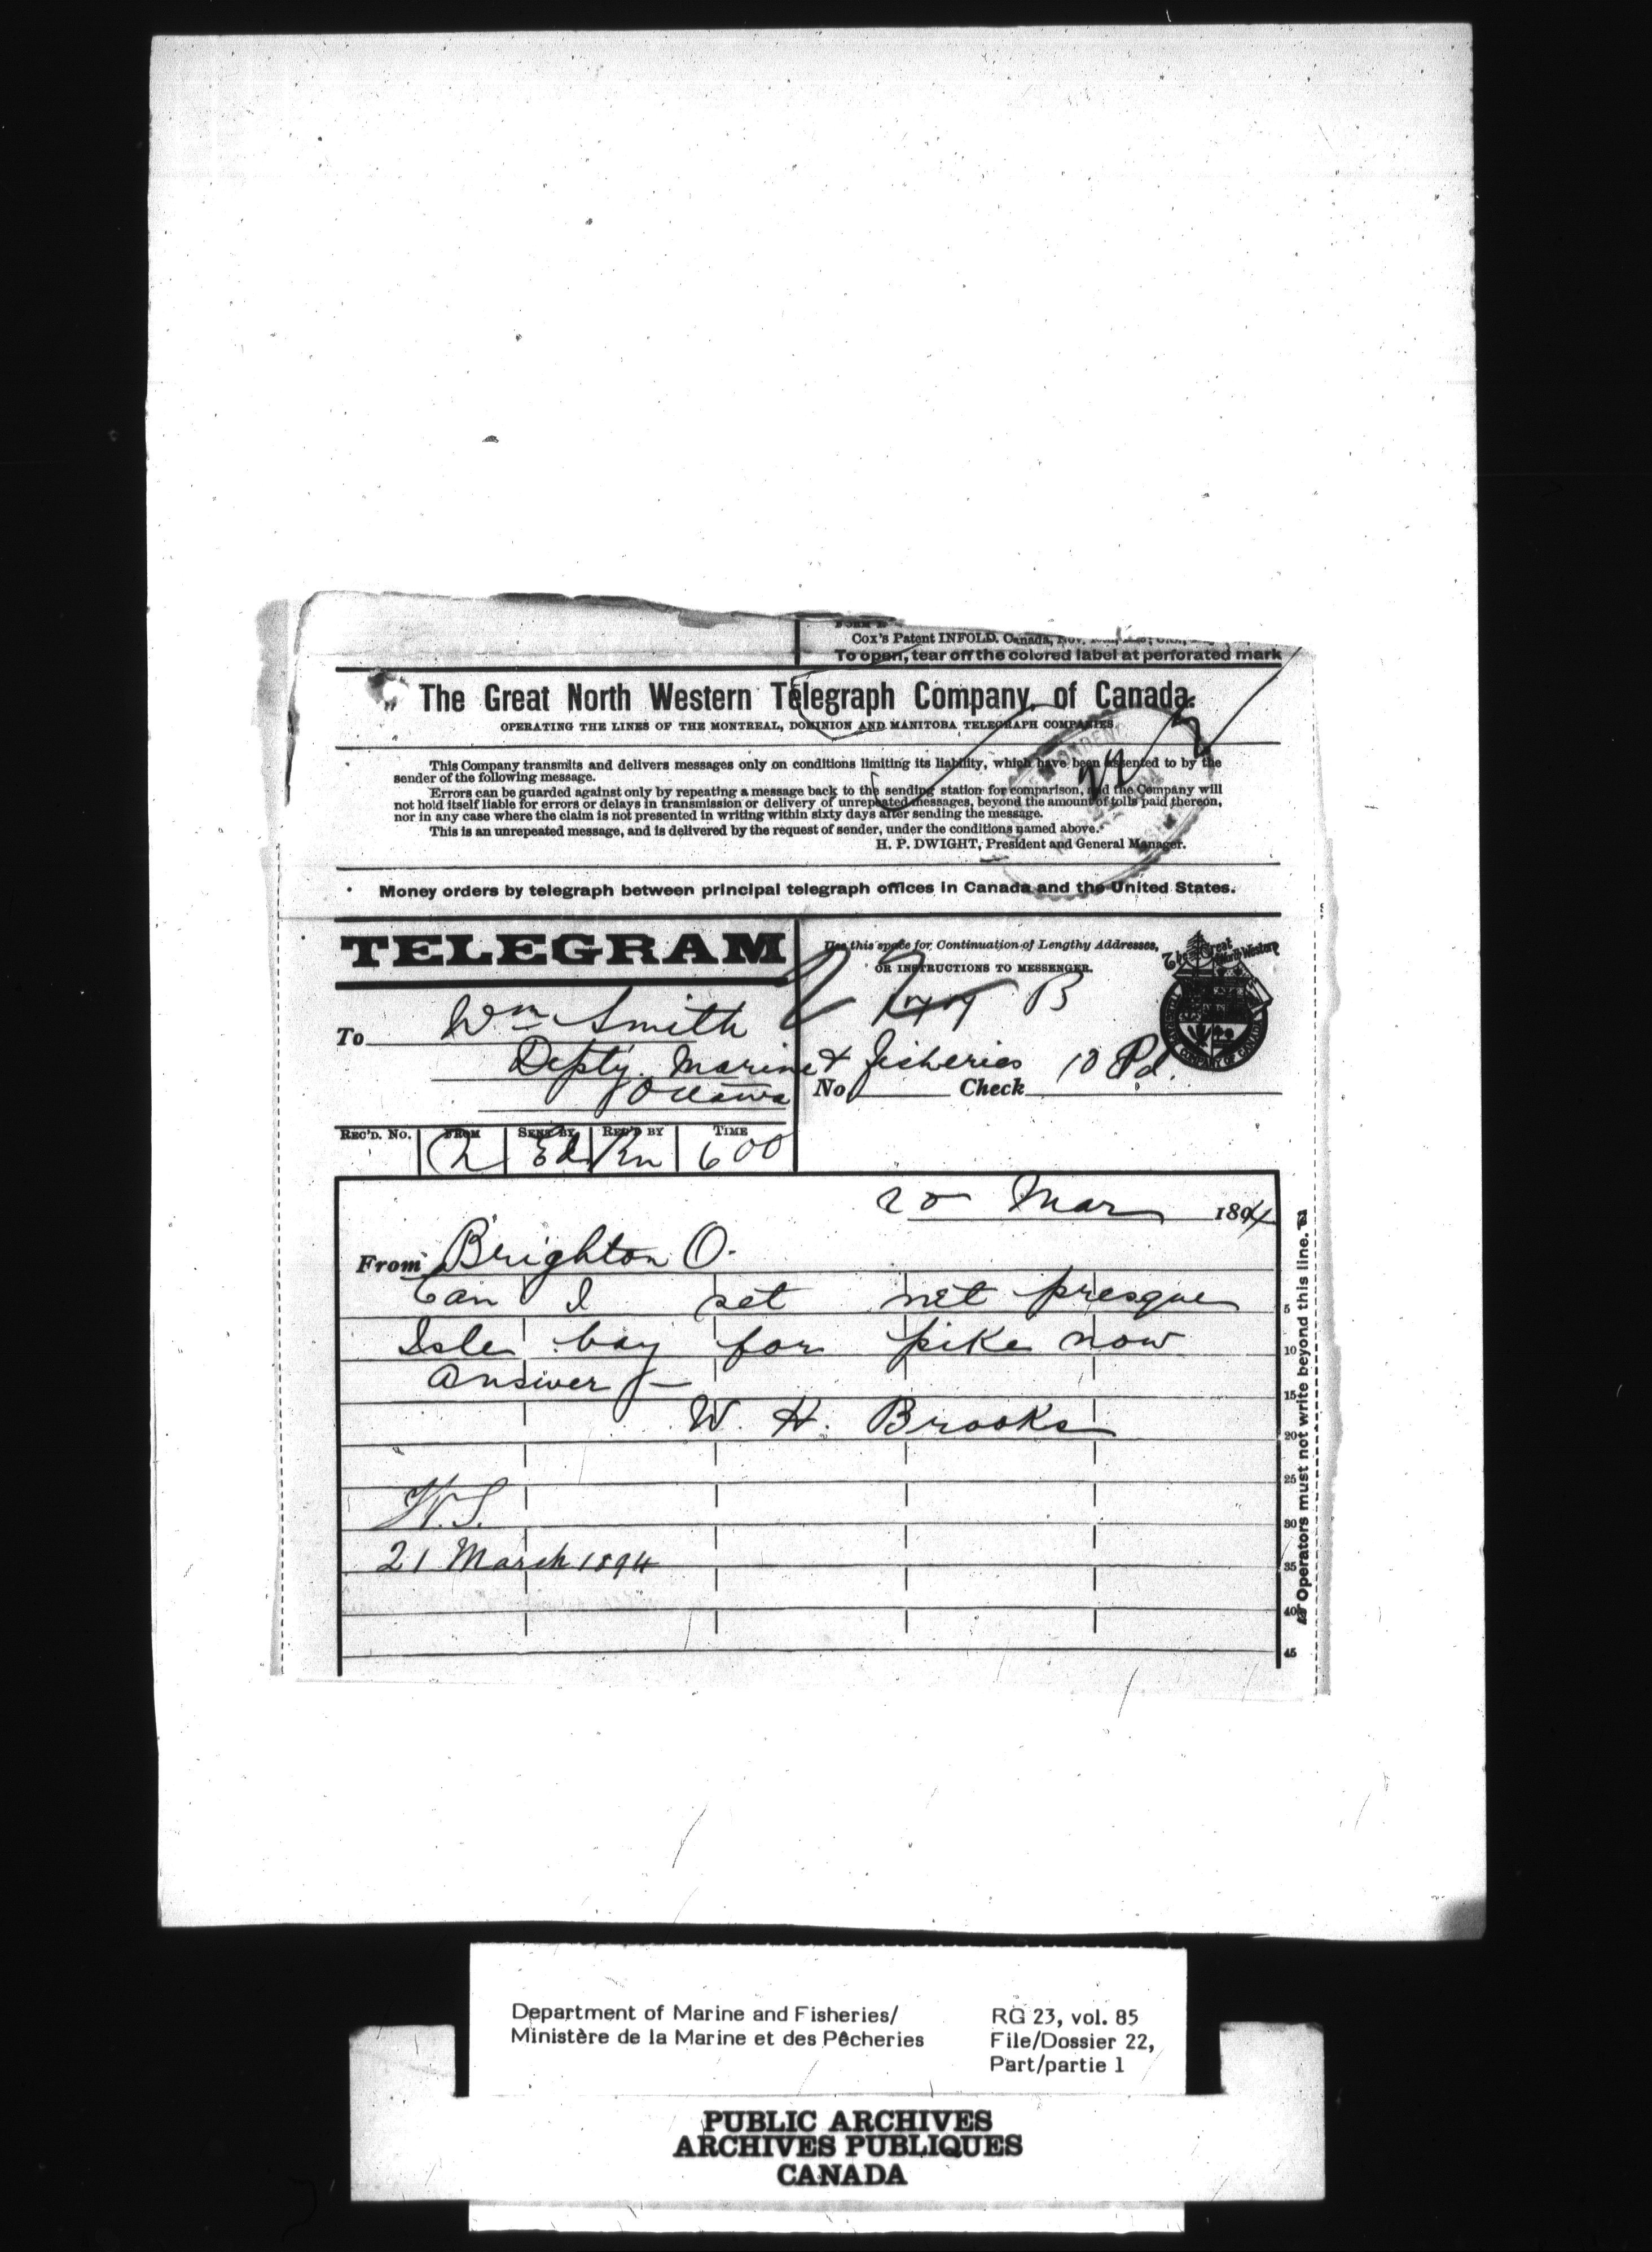 Cox's Patent INFOLD. Canada,
To open, tear off the colored label at perforated mark
The Great North Western Telegraph Company of Canada.
OPERATING THE LINES OF THE MONTREAL, DOMINION AND MANITOBA TELEGRAPH COMPANIES
This Company transmits and delivers messages only on conditions limiting its liability, which have been assented to by the
sender of the following message.
Errors can be guarded against only by repeating a message back to the sending station for comparison, and the Company will
not hold itself liable for errors or delays in transmission or delivery of unrepeated messages, beyond the amount of tolls paid thereon,
nor in any case where the claim is not presented in writing within sixty days after sending the message.
This is an unrepeated message, and is delivered by the request of sender, under the conditions named above.
H. P. DWIGHT, President and General Manager.
Money orders by telegraph between principal telegraph offices in Canada and the United States.
TELEGRAM
Use this space for Continuation of Lengthy Addresses,
OR INSTRUCTIONS TO MESSENGER.
The Great North Western
B
To Wm Smith
Depty. Marine & Fisheries 10 Pd.
Ottawa
No Check
REC'D. No. FROM SENT BY REC'D BY TIME
600
20 Mar 1894
From Brighton O.
Can I set net presque
Isle bay for pike now
Answer -
W. H. Brooks
W.S.
21 March 1894
5
10
15
20
25
30
35
40
45
Operators must not write beyond this line.
Department of Marine and Fisheries/
Ministère de la Marine et des Pêcheries
RG 23, vol. 85
File/Dossier 22,
Part/partie 1
PUBLIC ARCHIVES
ARCHIVES PUBLIQUES
CANADA